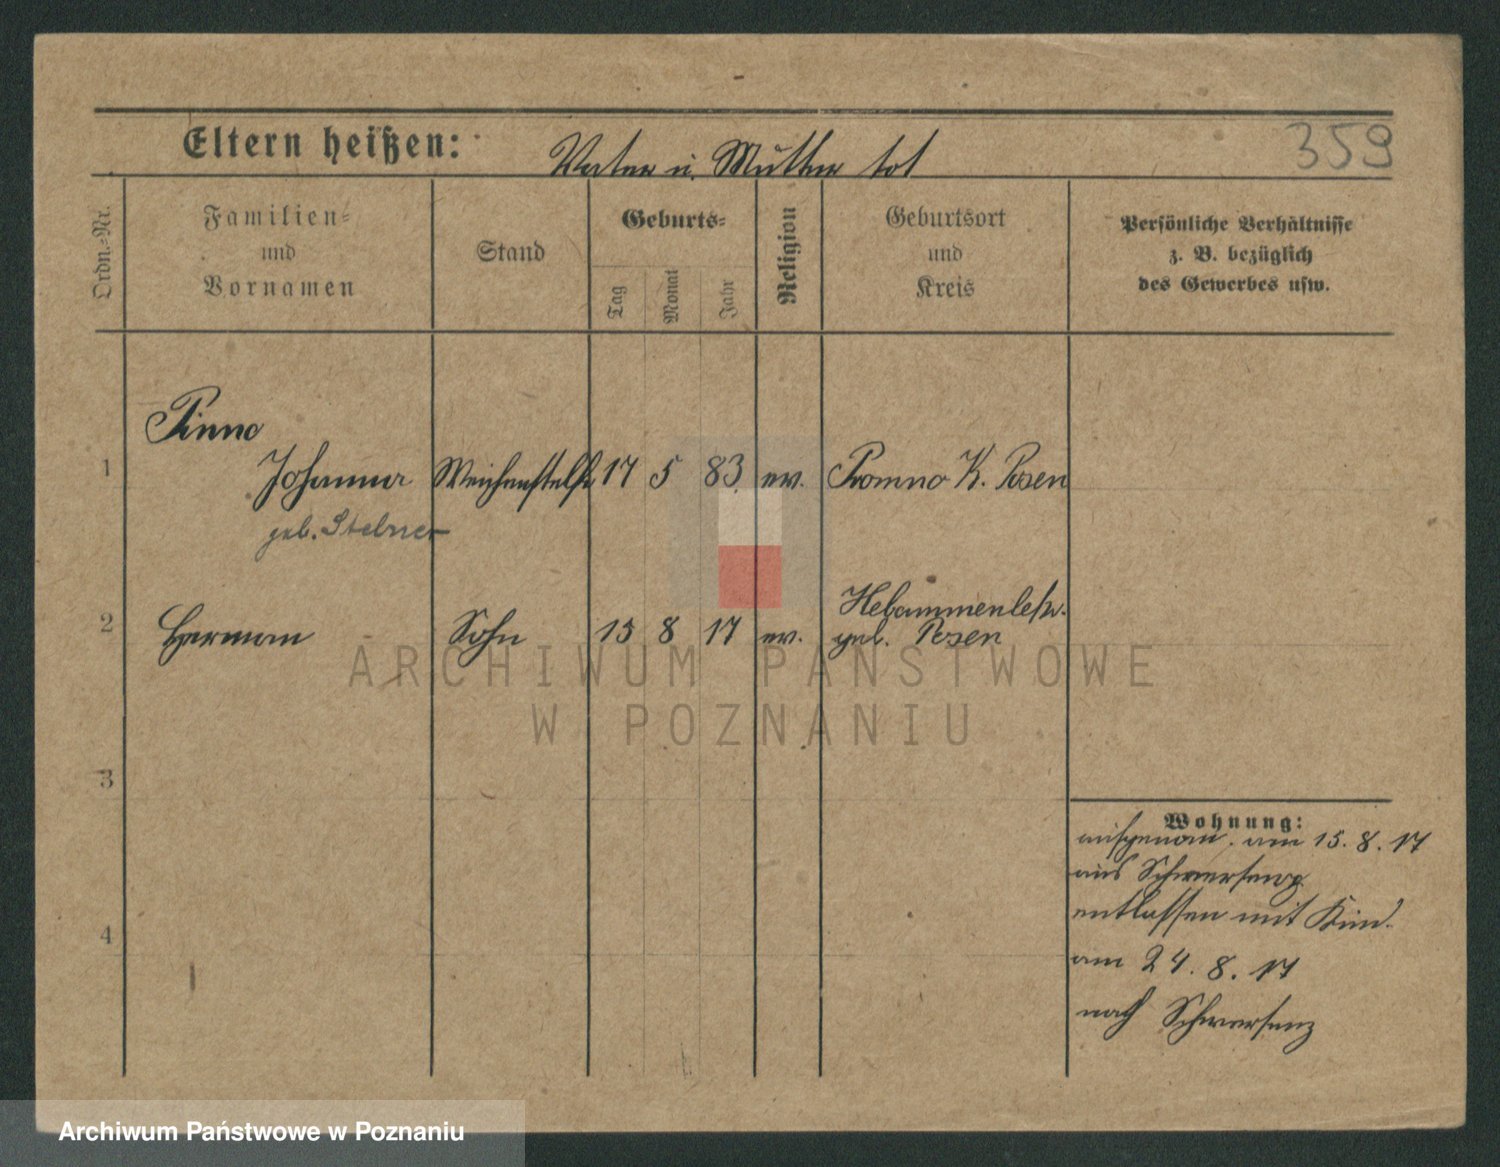 359
Eltern heißen: Vater u. Mutter tot
Ordn.-Nr.
Familien-
und
Vornamen
Stand
Geburts-
Tag
Monat
Jahr
Religion
Geburtsort
und
Kreis
Persönliche Verhältnisse
z. B. bezüglich
des Gewerbes usw.
Pinno
1 Johanna Weichenstellfr 17 5 83. ev. Promno K. Posen
geb. Stelmer
Hebammenlehr.
2 Herman Sohn 15 8 17 ev. geb. Posen
ARCHIWUM PAŃSTWOWE
W POZNANIU
3
Wohnung:
aufgenom. am 15. 8. 17
aus Schwersenz
entlassen mit Kind.
4
am 24. 8. 17
nach Schwersenz
Archiwum Państwowe w Poznaniu